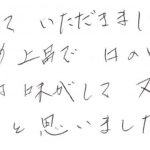 て いただきまし
上品で 口の
味がして 又
と思いました